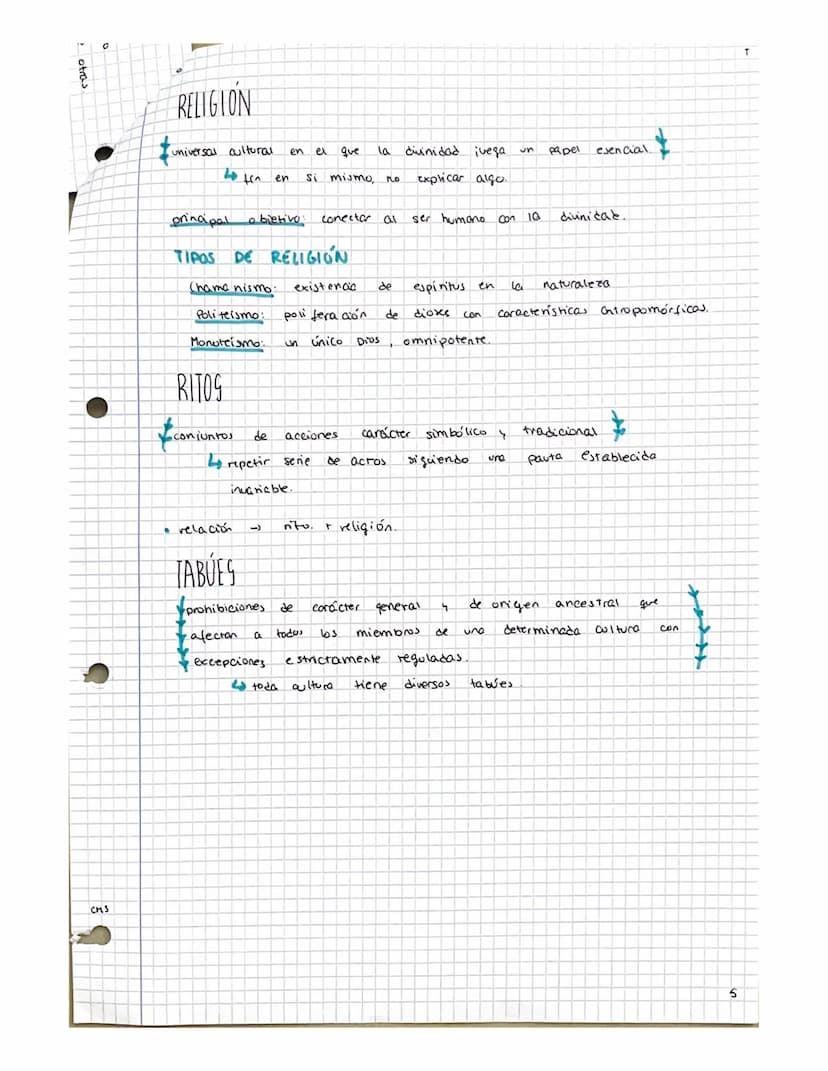 otras
T
RELIGIÓN
universal cultural en el que la divinidad juega un papel esencial.
↳ fin en si mismo, no explicar algo.
principal objetivo: conectar al ser humano con la divinidad.
TIPOS DE RELIGIÓN
Chamanismo: existencia de espíritus en la naturaleza
Politeísmo: poliferación de dioses con características antropomórficas.
Monoteísmo: un único Dios, omnipotente.
RITOS
conjuntos de acciones carácter simbólico y tradicional
↳ repetir serie de actos siguiendo una pauta establecida
invariable.
• relación → rito + religión.
TABÚES
prohibiciones de carácter general y de origen ancestral que
afectan a todos los miembros de una determinada cultura con
excepciones estrictamente reguladas.
↳ toda cultura tiene diversos tabúes.
CMS
5